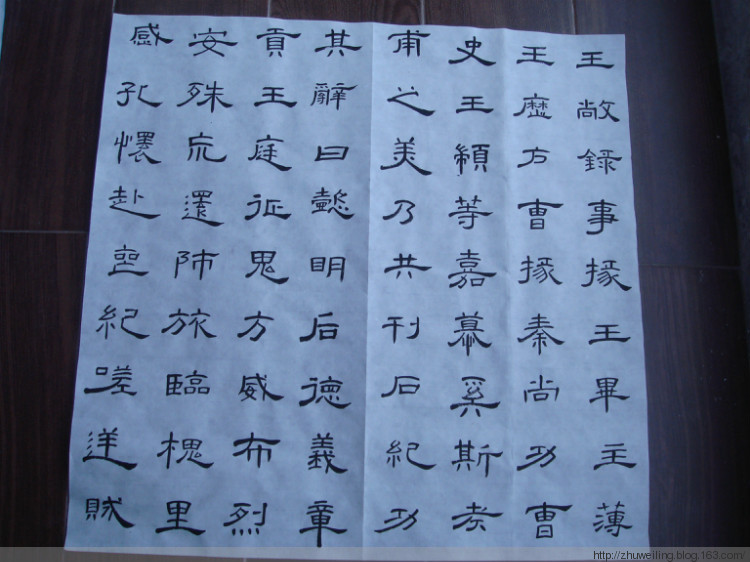 王敞錄事掾王畢主薄
王歷戶曹掾秦尚功曹
史王顓等嘉慕奚斯考
甫之美乃共刊石紀功
其辭曰懿明后德義章
貢王庭征鬼方威布烈
安殊荒還師旅臨槐里
感孔懷赴喪紀嗟逆賊
http://zhuweiling.blog.163.com/